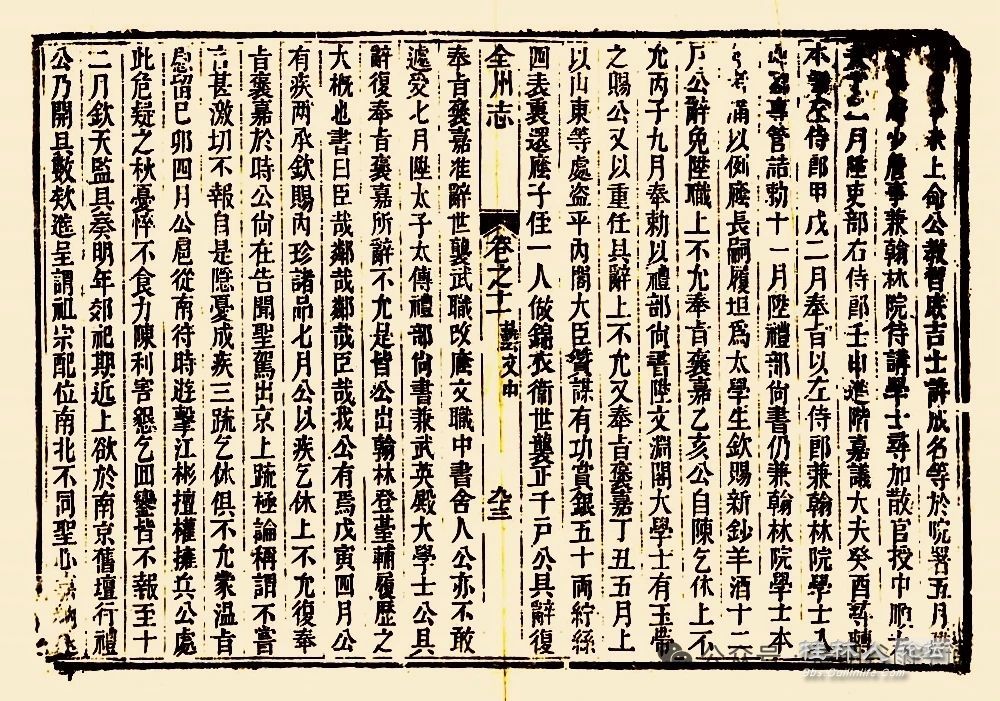 上命公教習庶吉士許成名等於院署五月
少詹事兼翰林院侍講學士尋加散官授中順
一月陞吏部右侍郎壬申進階嘉議大夫癸酉尋轉
本部左侍郎甲戌二月奉旨以左侍郎兼翰林院學士入
專管誥勅十一月陞禮部尚書仍兼翰林院學士本
滿以例廕長嗣履坦爲太學生欽賜新鈔羊酒十二
月公辭免陞職上不允奉旨褒嘉乙亥公自陳乞休上不
允丙子九月奉勅以禮部尚書陞文淵閣大學士有玉帶
之賜公又以重任具辭上不允又奉旨褒嘉丁丑五月上
以山東等處盗平內閣大臣贊謀有功賞銀五十兩紵絲
四表裏還廕子侄一人做錦衣衞世襲正千戶公具辭復
全州志 卷之十一 藝文中 九三
奉旨褒嘉准辭世襲武職改廕文職中書舍人公亦不敢
遽受七月陞太子太傅禮部尚書兼武英殿大學士公具
辭復奉旨褒嘉所辭不允是皆公出翰林登臺輔履歷之
大槪也書曰臣哉鄰哉鄰哉臣哉我公有焉戊寅四月公
有疾兩承欽賜內珍諸品七月公以疾乞休上不允復奉
旨褒嘉於時公尚在告聞聖駕出京上疏極論稱謂不書
言甚激切不報自是隱憂成疾三疏乞休俱不允蒙溫旨
慰留己卯四月公扈從南符時遊擊江彬擅權擁兵公處
此危疑之秋憂悴不食力陳利害懇乞回鑾皆不報至十
二月欽天監具奏明年郊祀期近上欲於南京舊壇行禮
公乃開具數欵進呈謂祖宗配位南北不同聖心
桂林人论坛
bbs.Guilinlife.com